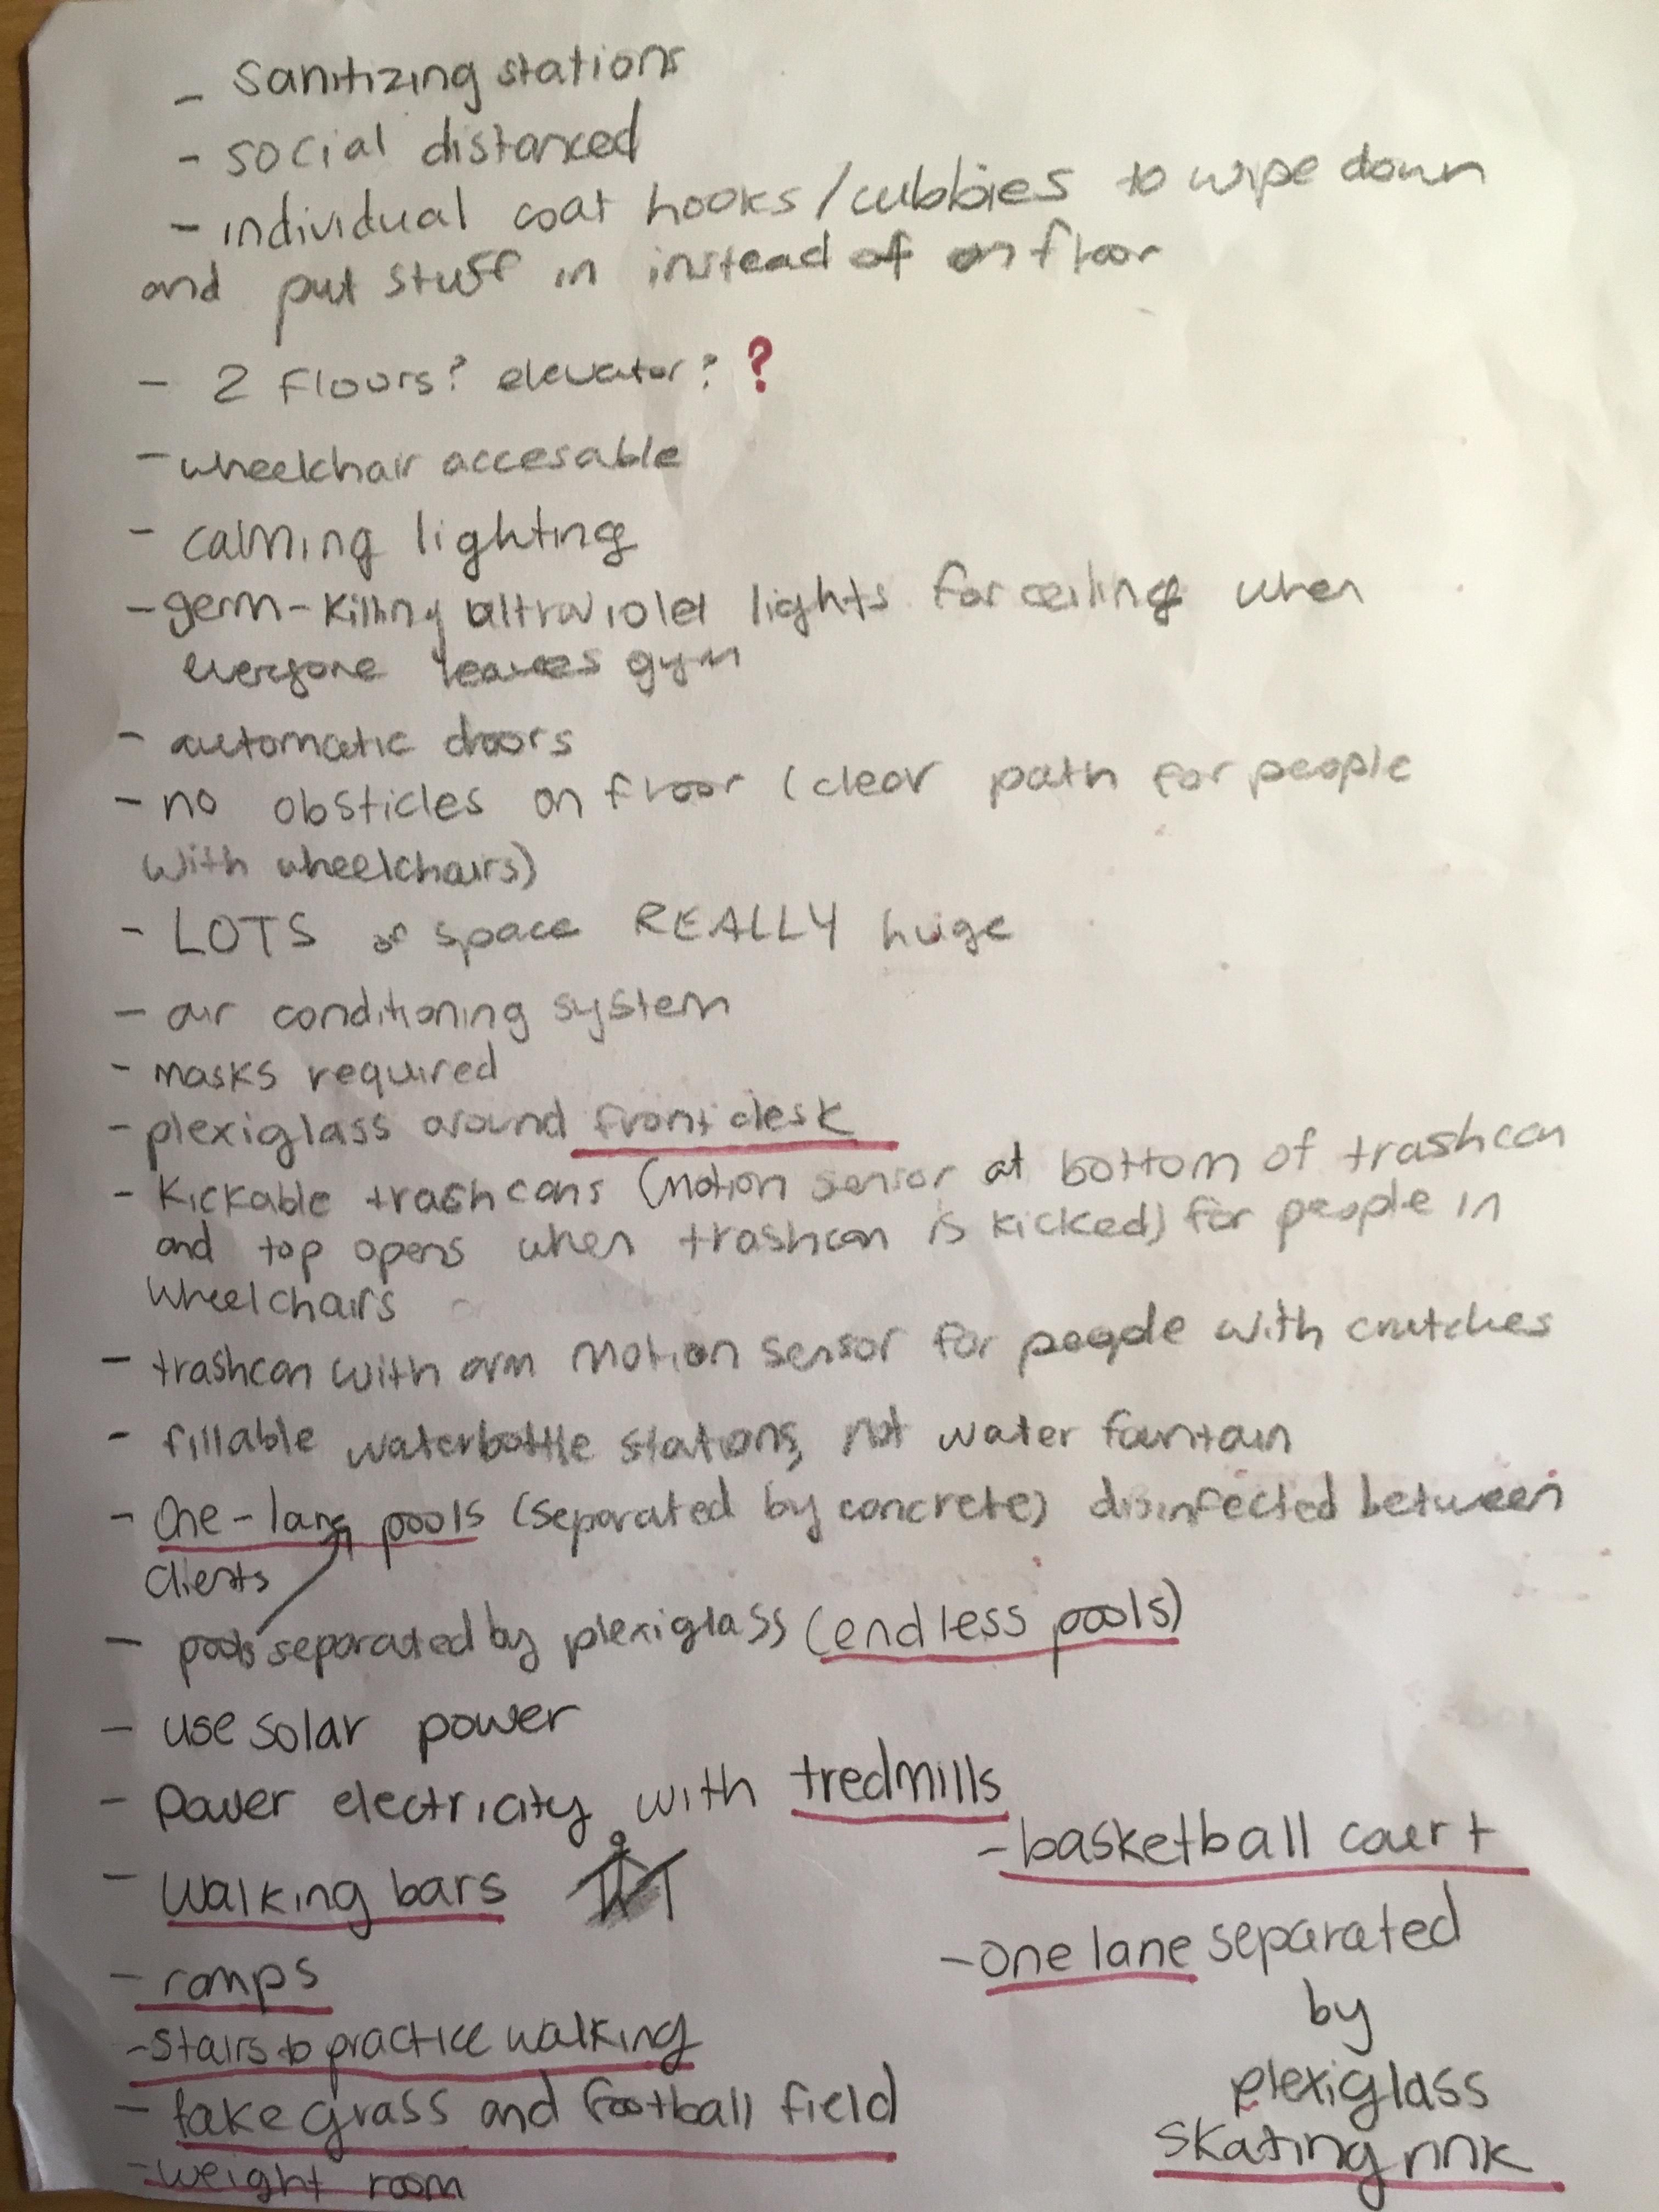 - Sanitizing stations
- social distanced
- individual coat hooks/cubbies to wipe down
and put stuff in instead of on floor
- 2 flours? elevator? ?
- wheelchair accesable
- calming lighting
- germ-killing ultraviolet lights for ceiling when
everyone leaves gym
- automatic doors
- no obsticles on floor (clear path for people
with wheelchairs)
- LOTS of space REALLY huge
- air conditioning system
- masks required
- plexiglass around front desk
- Kickable trashcans (motion sensor at bottom of trashcan
and top opens when trashcan is kicked) for people in
wheelchairs
- trashcan with arm motion sensor for people with crutches
- fillable waterbottle stations, not water fountain
- One-lane pools (separated by concrete) disinfected between
clients
- pools separated by plexiglass (endless pools)
- use solar power
- Power electricity with tredmills
- walking bars
- ramps
- stairs to practice walking
- fake grass and football field
- weight room
- basketball court
- one lane separated
by
plexiglass
skating rink